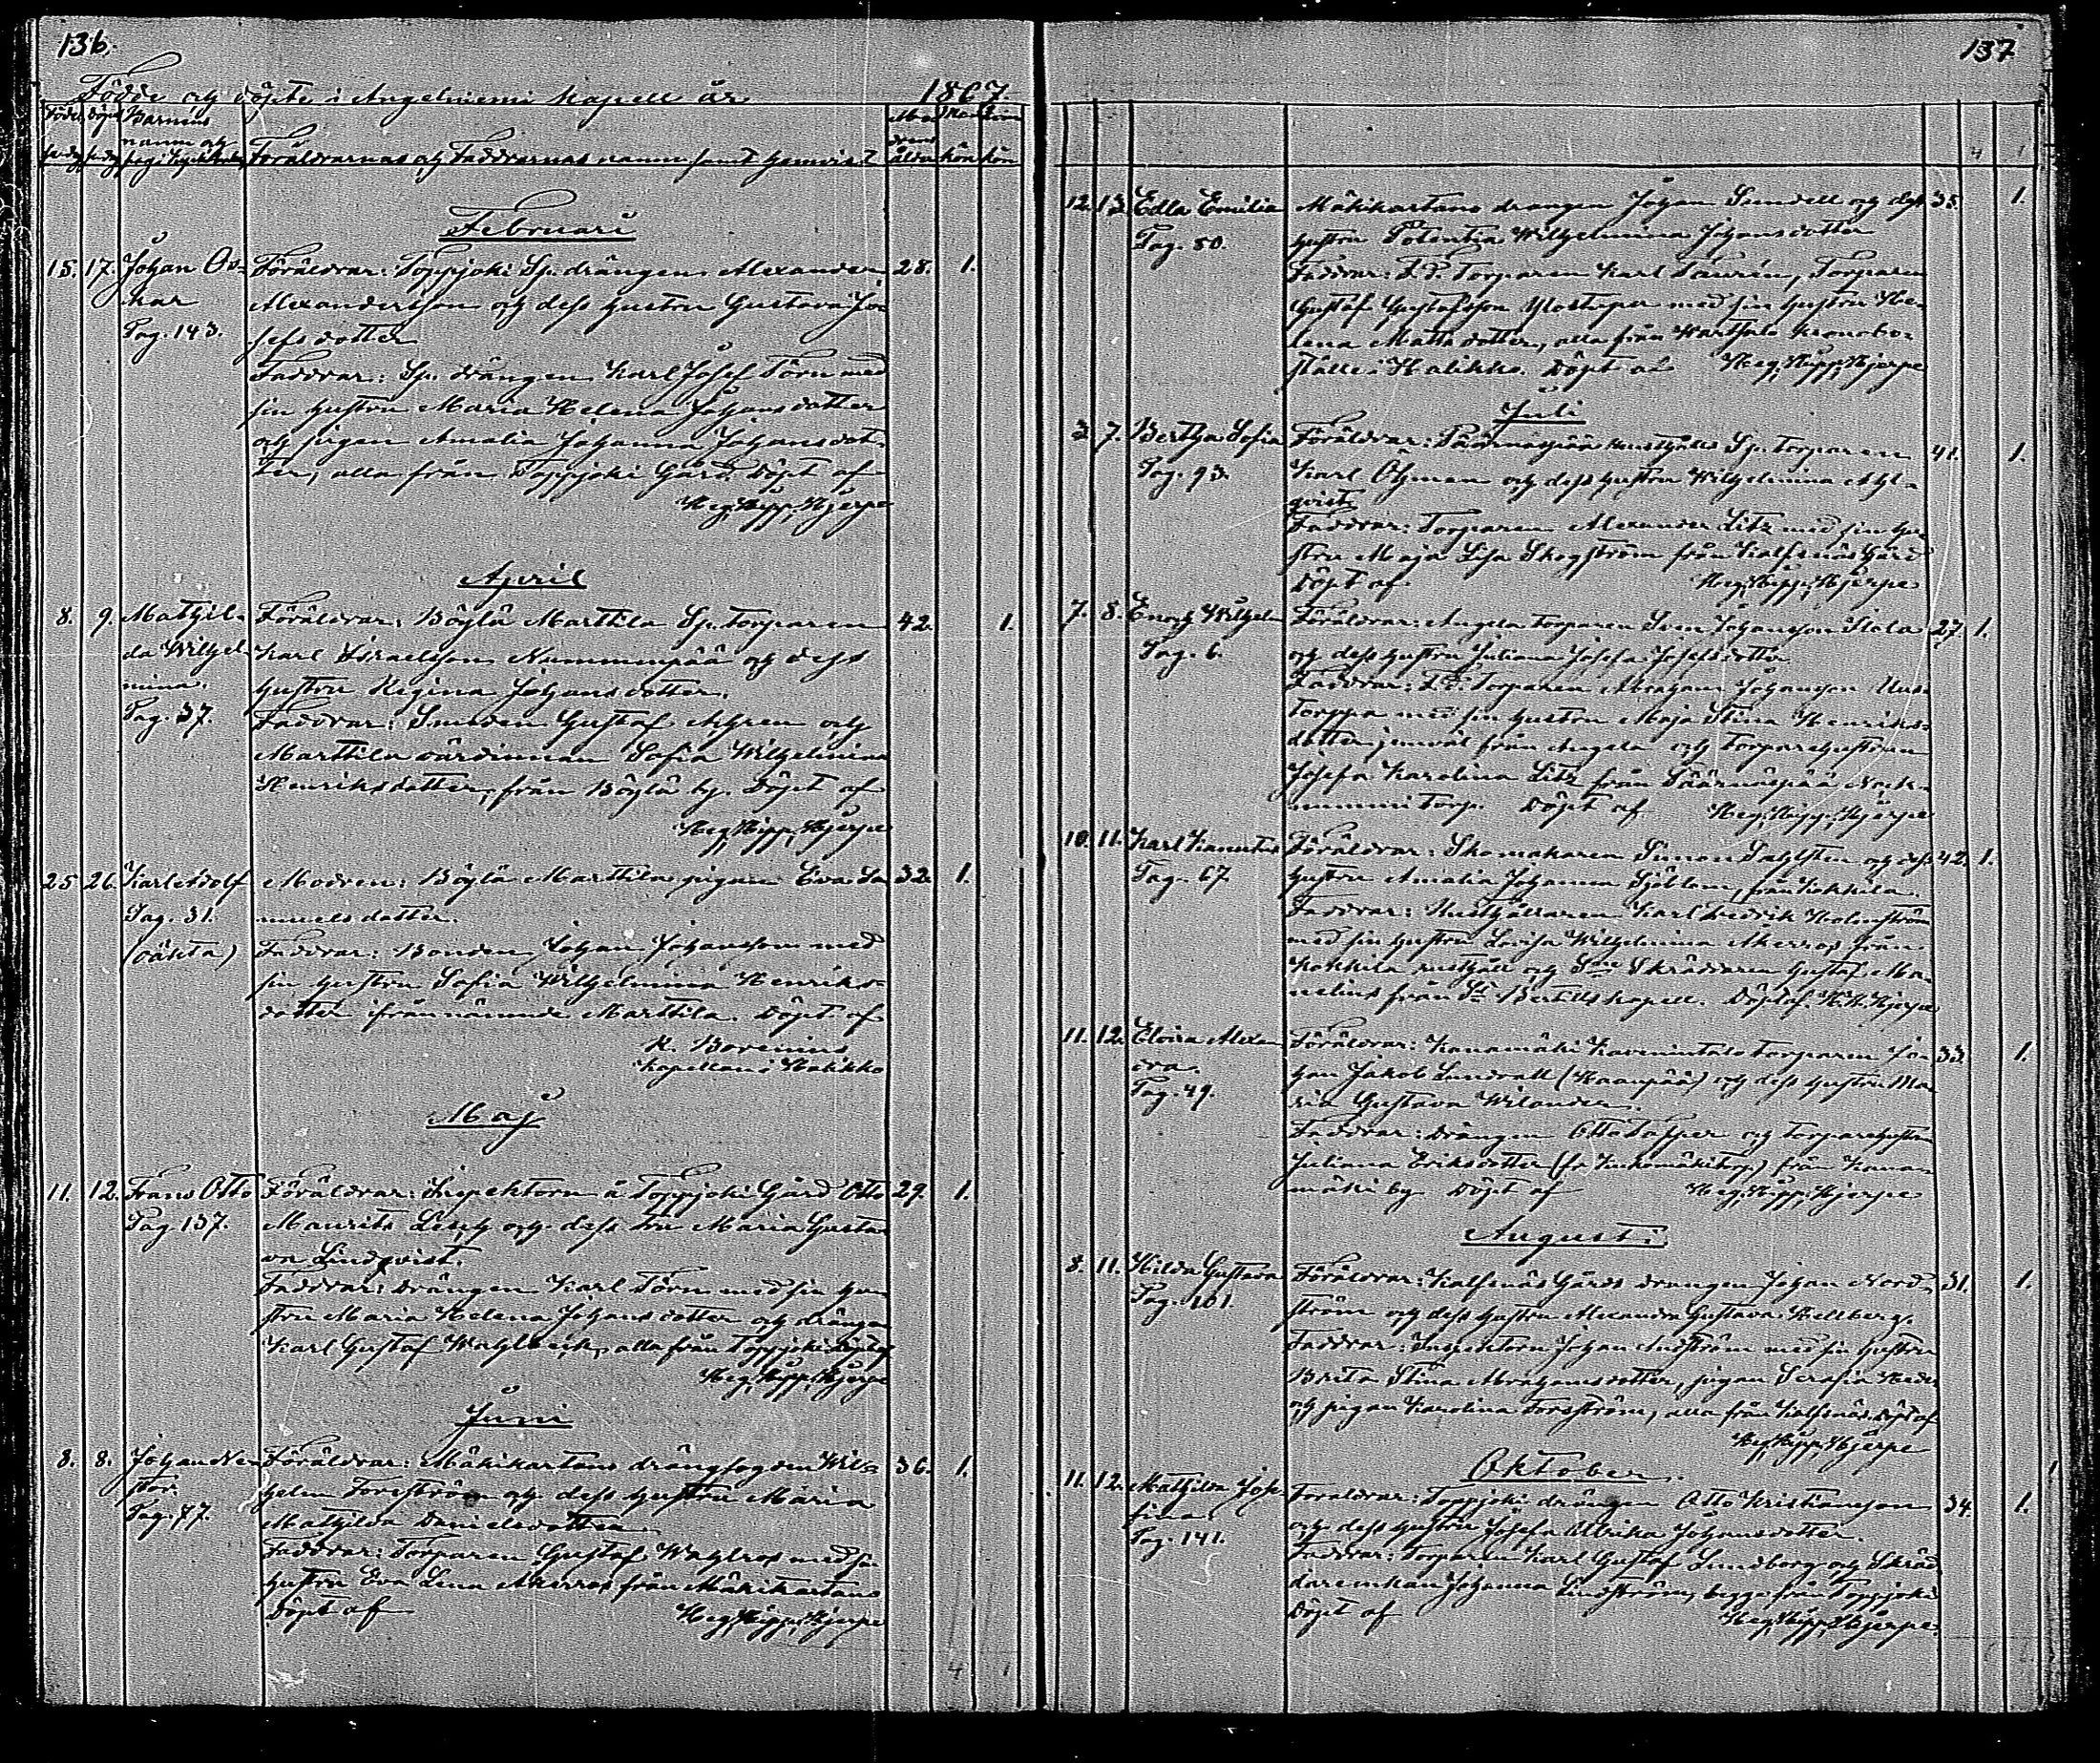 136.
Födde och döpte i Angelniemi Kapell år 1867
Födde döpte Barnens namn och pag. i Kyrkboken
Föräldrarnas och Faddrarnas namn samt hemvist
Modrens ålder Mankön kön
Februari
15. 17. Johan Os- Föräldrar: Toppjoki Sp. drängen Alexander 28. 1.
kar Alexandersson och dess hustru Gustava Jo-
Pag. 143. sefsdotter
Faddrar: Sp. drängen Karl Josef Törn med
sin hustru Maria Helena Johansdotter
och pigan Amalia Johanna Johansdot-
ter, alla från Toppjoki Gård. Döpt af
Heg. Kapp. Hjerpe
April
8. 9. Mathil- Föräldrar: Böylä Marttila Sp. Torparen 42. 1.
da Wilhel- Karl Israelsson Nummenpää och dess
mina. hustru Regina Johansdotter.
Pag. 37. Faddrar: Smeden Gustaf Ahgren och
Marttila värdinnan Sofia Wilhelmina
Henriksdotter, från Böylä by. Döpt af
Heg. Kapp. Hjerpe
25 26. Karl Adolf Modren: Böylä Marttila pigan Eva Sa- 32. 1.
Pag. 31. muelsdotter.
(oäkta) Faddrar: Bonden Johan Johansson med
sin hustru Sofia Wilhelmina Henriks-
dotter ifrån nämnde Marttila. Döpt af
K. Borenius
Kapellan i Halikko
Maj
11. 12. Frans Otto Föräldrar: Inspektorn å Toppjoki Gård Otto 29. 1.
Pag 137. Maurits Lesch och dess fru Maria Gusta-
va Lindqvist.
Faddrar: Drängen Karl Törn med sin hu-
stru Maria Helena Johansdotter och drängen
Karl Gustaf Wahlbeck, alla från Toppjoki. Döpt af
Heg. Kapp. Hjerpe
Juni
8. 8. Johan Ne- Föräldrar: Mäkikartano drängfogden Wil- 36. 1.
stor. helm Forsström och dess hustru Maria
Pag. 77. Mathilda Danielsdotter
Faddrar: Torparen Gustaf Wahlros med s.
hustru Eva Lena Åkerros från Mäkikartano
Döpt af Heg. Kapp. Hjerpe
4 1
137
4 1
12. 13. Edla Emilia Mäkikartano drängen Johan Sundell och dess 35. 1.
Pag. 80. hustru Potentia Wilhelmina Johansdotter
Faddrar: Torparen Karl Laurén, Torparen
Gustaf Gustafsson Ylostapu med sin hustru He-
lena Mattsdotter, alla från Wartsalo Kronobo-
ställe i Halikko. Döpt af Heg. Kapp. Hjerpe
Juli
3. 7. Bertha Sofia Föräldrar: Päärnäspää Rusthålls Sp. Torparen 41. 1.
Pag. 93. Karl Öhman och dess hustru Wilhelmina Ahl-
qvist
Faddrar: Torparen Alexander Litz med sin hu-
stru Maja Lisa Skogström från Kalfsnäs Gård
Döpt af Heg. Kapp. Hjerpe
7. 8. Enoch Wilhelm Föräldrar: Angela torparen Sven Johansson Isota 27. 1.
Pag. 6. och dess hustru Juliana Josefa Josefsdotter
Faddrar: Torparen Abraham Johansson Uus-
torppa med sin hustru Maja Stina Henriks-
dotter, jemväl från Angela och torparehustrun
Josefa Karolina Litz från Päärnäspää
torp. Döpt af Heg. Kapp. Hjerpe
10. 11. Karl Kanutus Föräldrar: Skomakaren Simon Sahlsten och dess 42. 1.
Pag. 67 hustru Amalia Johanna Sjöblom, från Kokkila.
Faddrar: Rusthållaren Karl Fredrik Holmström
med sin hustru Lovisa Wilhelmina Åkerros från
Kokkila rusthåll och Skräddaren Gustaf Ma-
nelius från St. Bertils kapell. Döpt af H. K. Hjerpe
11. 12. Elvira Alexan- Föräldrar: Kanamäki torparen Jo- 33. 1.
dra. han Jakob Lundvall (Haanpää) och dess hustru Ma-
Pag. 49. ria Gustava Wilander.
Faddrar: Drängen Otto och torparehustrun
Juliana Eriksdotter från Kana-
mäki by Döpt af Heg. Kapp. Hjerpe
Augusti
8. 11. Hilda Gustava Föräldrar: Kalfsnäs Gårds drängen Johan Nord- 31. 1.
Pag. 101. ström och dess hustru Alexandra Gustava Hellberg.
Faddrar: Inspektorn Johan med sin hustru
Brita Stina Abrahamsdotter, pigan Serafia
och pigan Karolina Forsström, alla från Kalfsnäs. Döpt af
Heg. Kapp. Hjerpe
Oktober
11. 12. Mathilda Jose- Föräldrar: Toppjoki drängen Otto Kristiansson 34. 1.
fina. och dess hustru Josefa Ulrika Johansdotter.
Pag. 141. Faddrar: Torparen Karl Gustaf Sundborg och Skräd-
dareenkan Johanna Lindström, begge från Toppjoki
Döpt af Heg. Kapp. Hjerpe